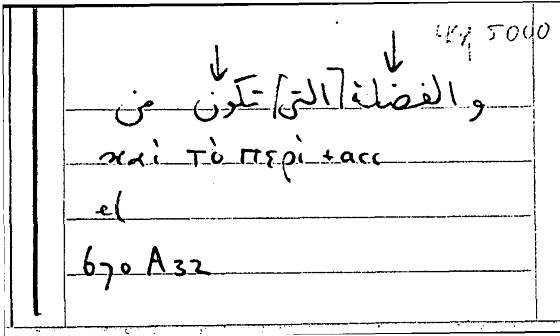 5000
والفضلة [التي] تكون من
καὶ τὸ περὶ + acc
el
670 A 32